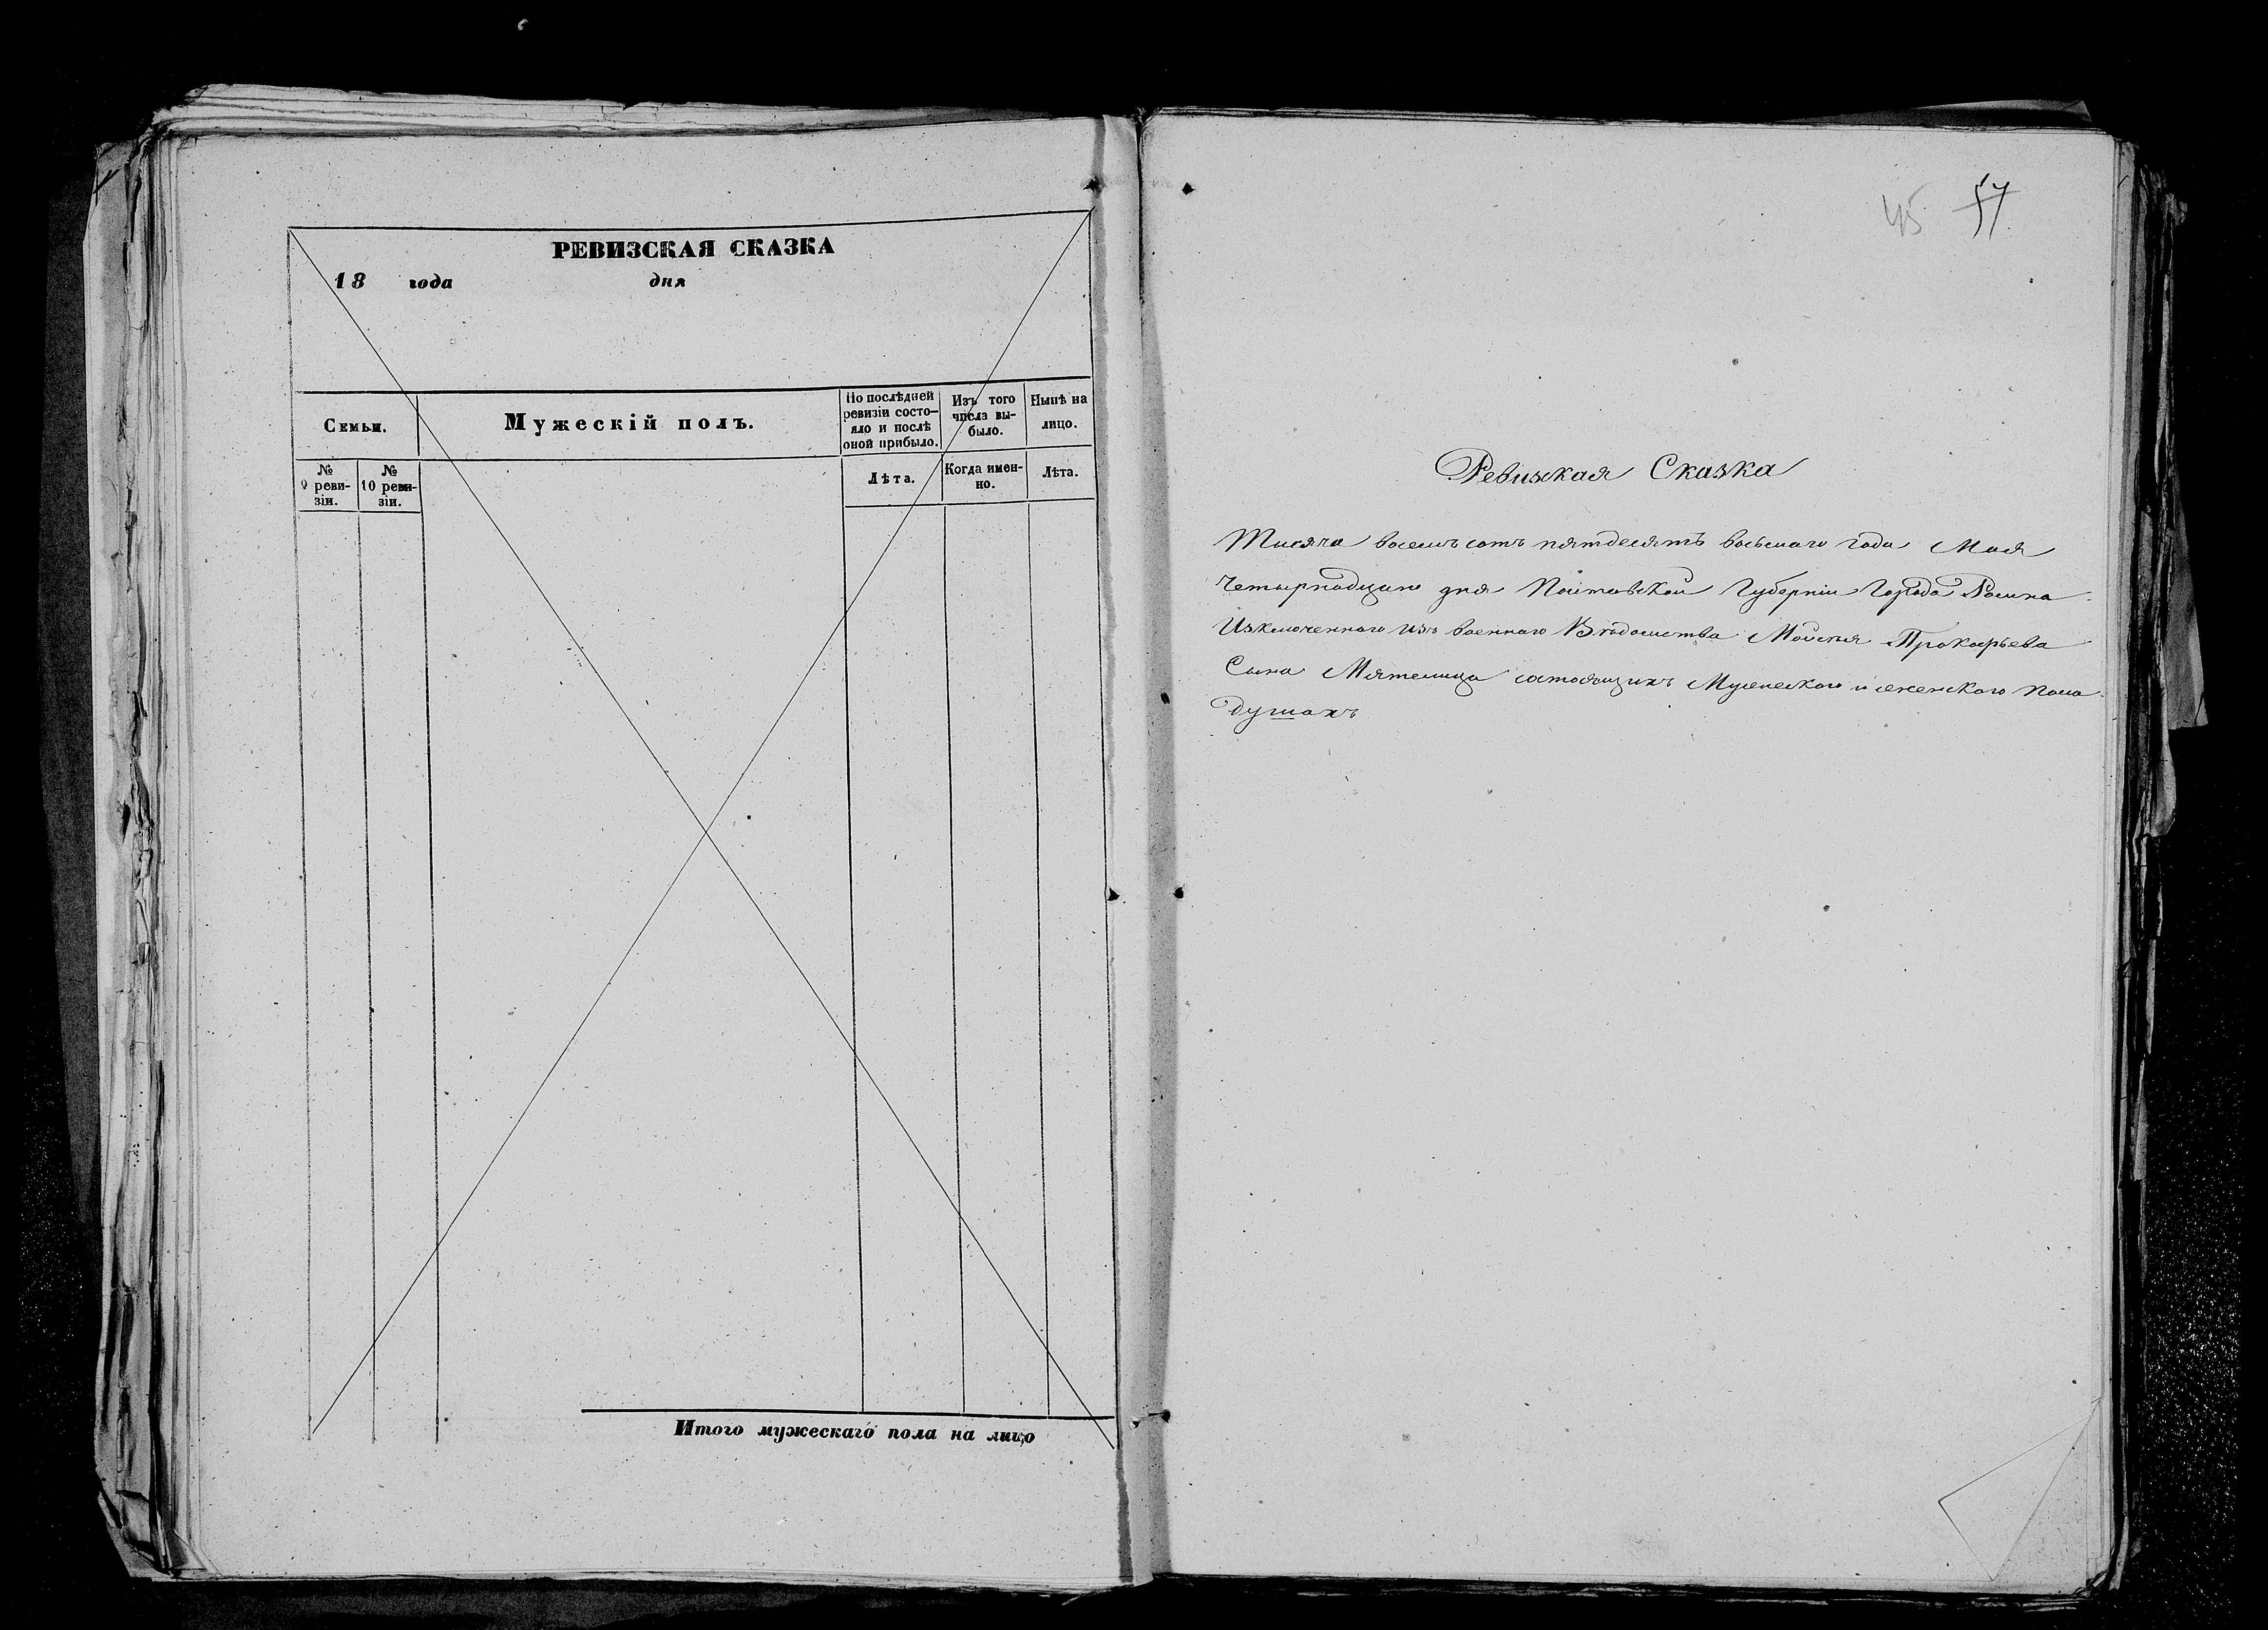 РЕВИЗСКАЯ СКАЗКА
18 года дня
Семьи.
Мужескій полъ.
По послѣдней
ревизіи состо-
яло и послѣ
оной прибыло.
Изъ того
числа вы-
было.
Нынѣ на
лицо.
№
9 реви-
зіи.
№
10 реви-
зіи.
Лѣта.
Когда имен-
но.
Лѣта.
Итого мужескаго пола на лицо
45 57
Ревизкая Сказка
Тысяча восемъ сотъ пятдесятъ восьмаго года Мая
Четырнадцаго дня Полтавской Губерніи Города Ромна
Изключенного изъ военного Вѣдомства Мойсея Прокофьева
Сына Мятелица состоящихъ Мужеского и женского пола
душахъ